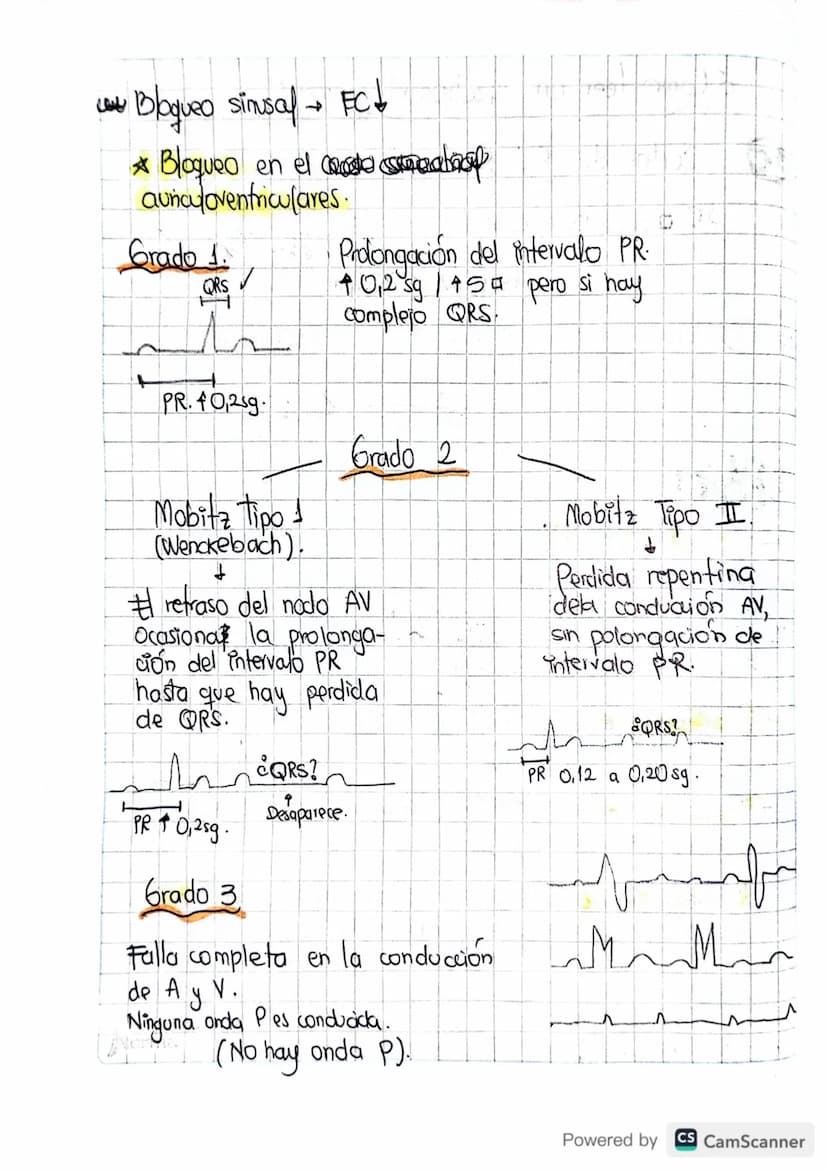 Bloqueo sinusal → FC↓
★ Bloqueo en el
auriculoventriculares.
Grado 1.
QRS ✓
PR. ↑0,2sg.
Prolongación del intervalo PR.
↑ 0,2 sg / ↑5 □ pero si hay
complejo QRS.
Grado 2
Mobitz Tipo 1
(Wenckebach).
↓
El retraso del nodo AV
Ocasiona la prolonga-
ción del intervalo PR
hasta que hay perdida
de QRS.
¿QRS?
PR ↑ 0,2sg.
↑
Desaparece.
Mobitz Tipo II.
↓
Perdida repentina
dela conducción AV,
sin polongación de
intervalo PR.
¿QRS?
PR 0,12 a 0,20 sg.
Grado 3
Falla completa en la conducción
de A y V.
Ninguna onda P es conducida.
(No hay onda P).
Powered by CS CamScanner